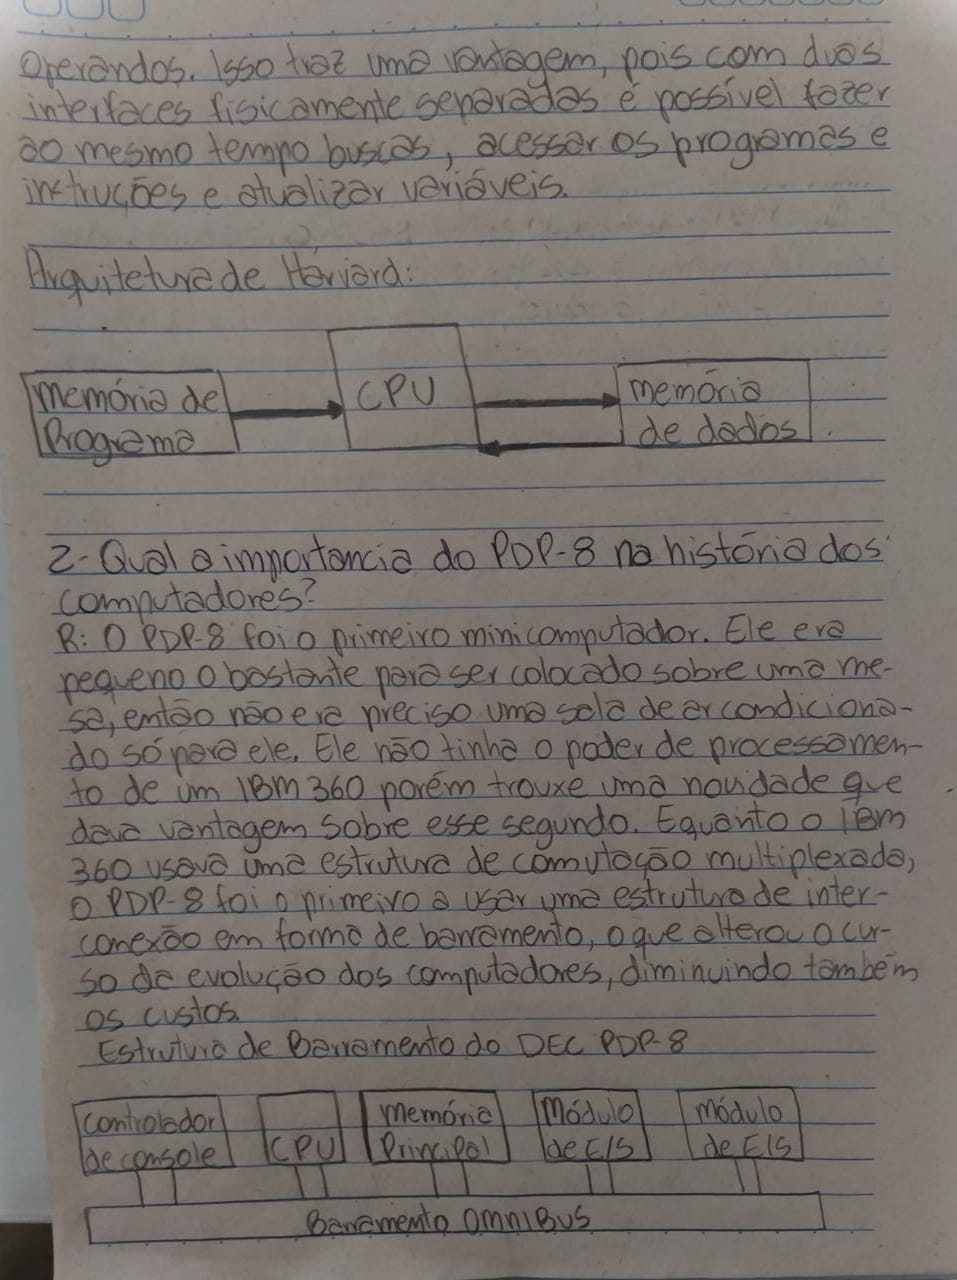 Operandos. Isso traz uma vantagem, pois com duas
interfaces fisicamente separadas é possível fazer
ao mesmo tempo buscas, acessar os programas e
instruções e atualizar variáveis.
Arquitetura de Harvard:
Memória de
Programa
CPU
memória
de dados
2-Qual a importancia do PDP-8 na história dos
computadores?
R: O PDP-8 foi o primeiro minicomputador. Ele era
pequeno o bastante para ser colocado sobre uma me-
sa, então não era preciso uma sala de ar condiciona-
do só para ele. Ele não tinha o poder de processamen-
to de um IBM 360 porém trouxe uma novidade que
dava vantagem sobre esse segundo. Equanto o IBM
360 usava uma estrutura de comutação multiplexada,
o PDP-8 foi o primeiro a usar uma estrutura de inter-
conexão em forma de barramento, o que alterou o cur-
so da evolução dos computadores, diminuindo também
os custos.
Estrutura de Barramento do DEC PDP-8
Controlador
de console
CPU
memória
Principal
Módulo
de E/S
módulo
de E/S
Barramento OMNIBUS